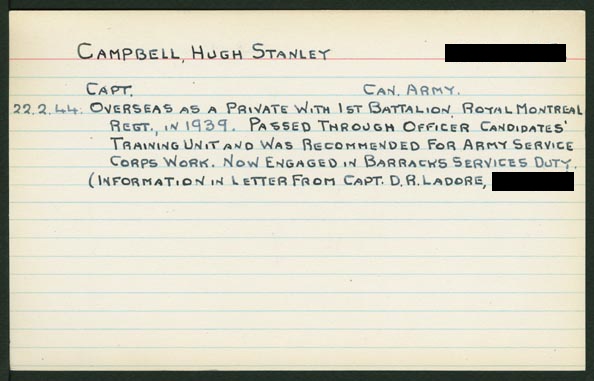 CAMPBELL, HUGH STANLEY
CAPT. CAN. ARMY.
22.2.44: OVERSEAS AS A PRIVATE WITH 1ST BATTALION, ROYAL MONTREAL
REGT., IN 1939. PASSED THROUGH OFFICER CANDIDATES'
TRAINING UNIT AND WAS RECOMMENDED FOR ARMY SERVICE
CORPS WORK. NOW ENGAGED IN BARRACKS SERVICES DUTY.
(INFORMATION IN LETTER FROM CAPT. D.R. LADORE,